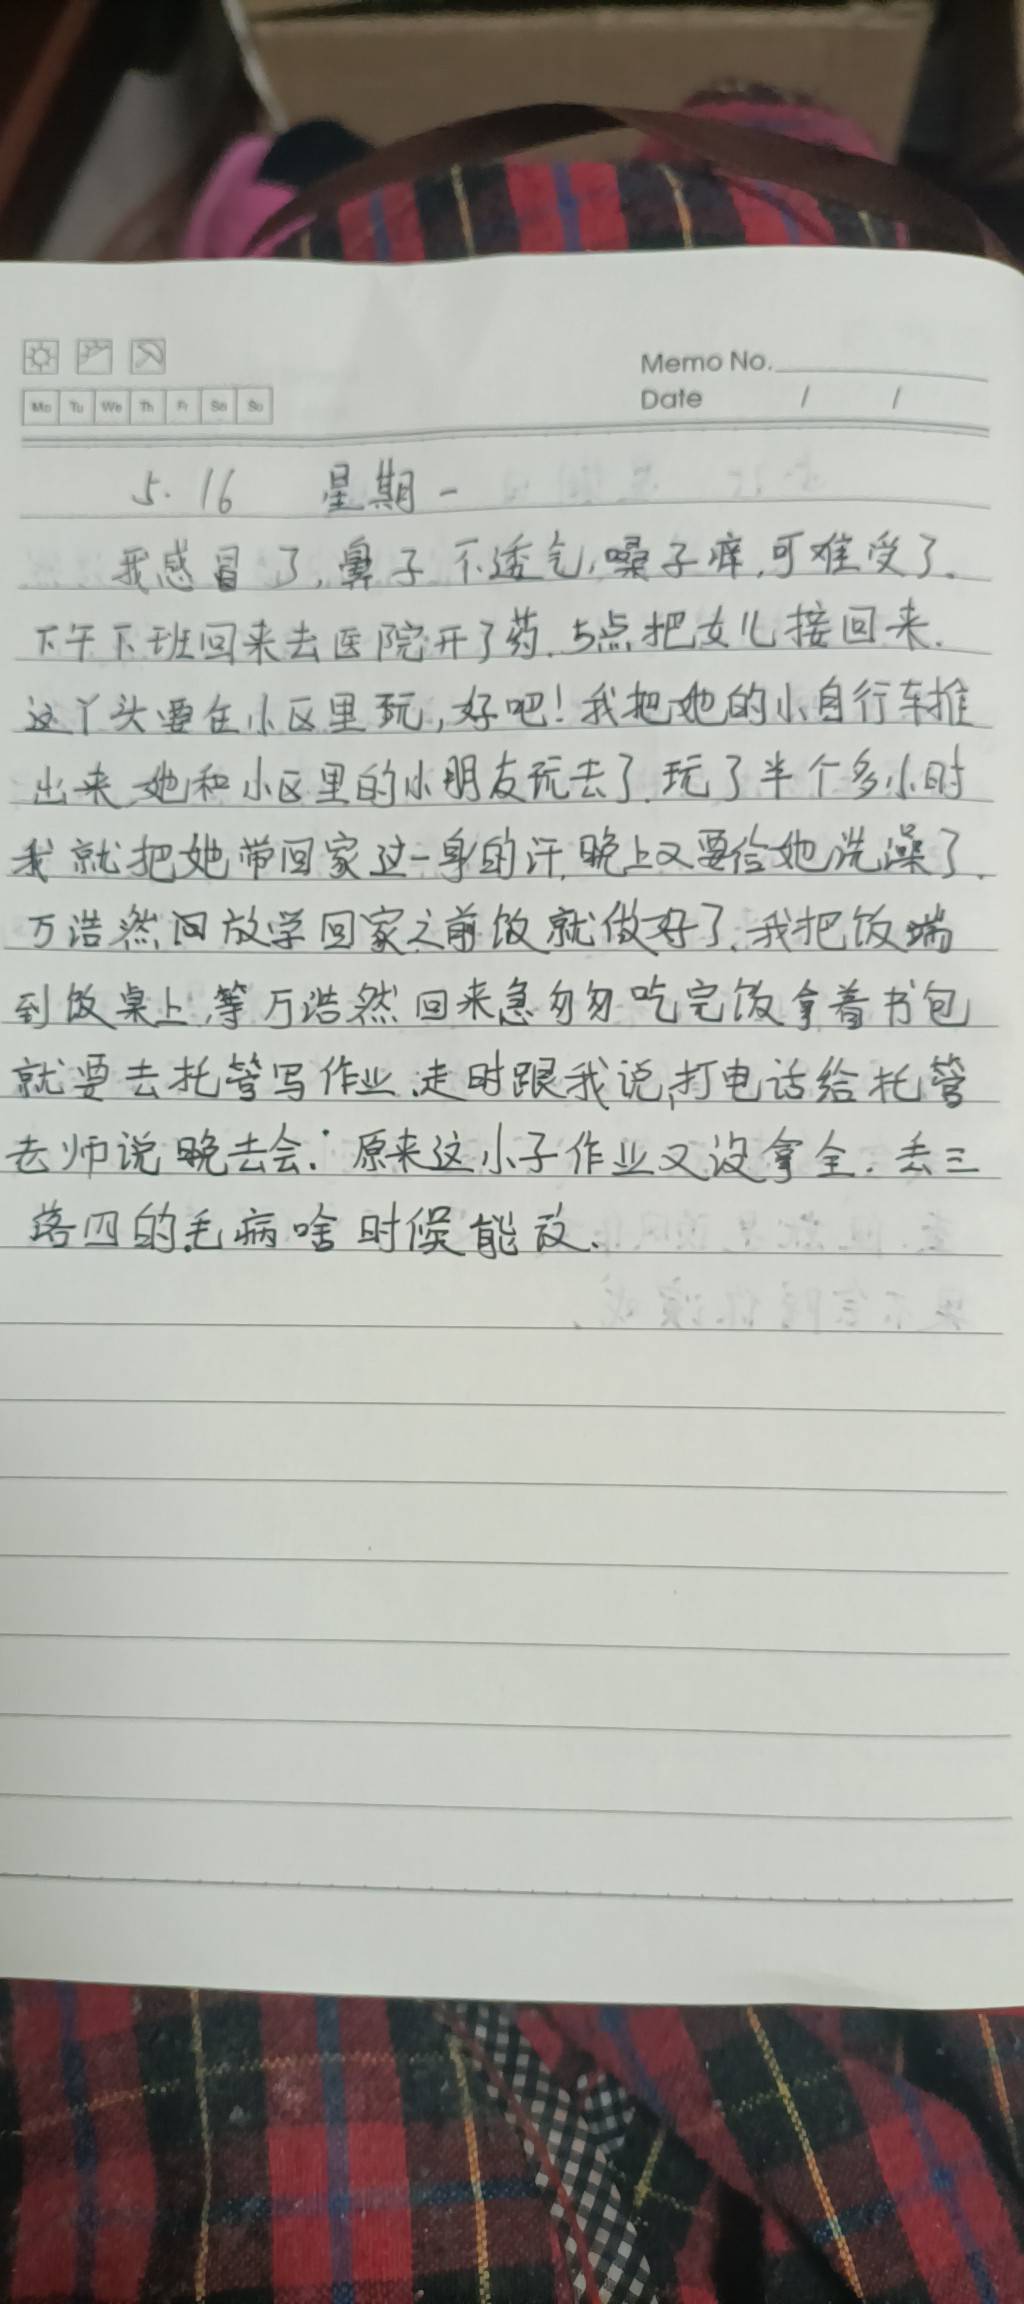 Memo No.
Mo Tu We Th Fr Sa Su
Date / /
5.16 星期一
我感冒了,鼻子不透气,嗓子痒,可难受了.
下午下班回来去医院开了药.5点把女儿接回来.
这丫头要在小区里玩,好吧!我把她的小自行车推
出来,她和小区里的小朋友玩去了.玩了半个多小时
我就把她带回家这一身的汗,晚上又要给她洗澡了.
万浩然回放学回家之前饭就做好了.我把饭端
到饭桌上,等万浩然回来急匆匆吃完饭拿着书包
就要去托管写作业,走时跟我说,打电话给托管
老师说晚去会.原来这小子作业又没拿全.丢三
落四的毛病啥时候能改.